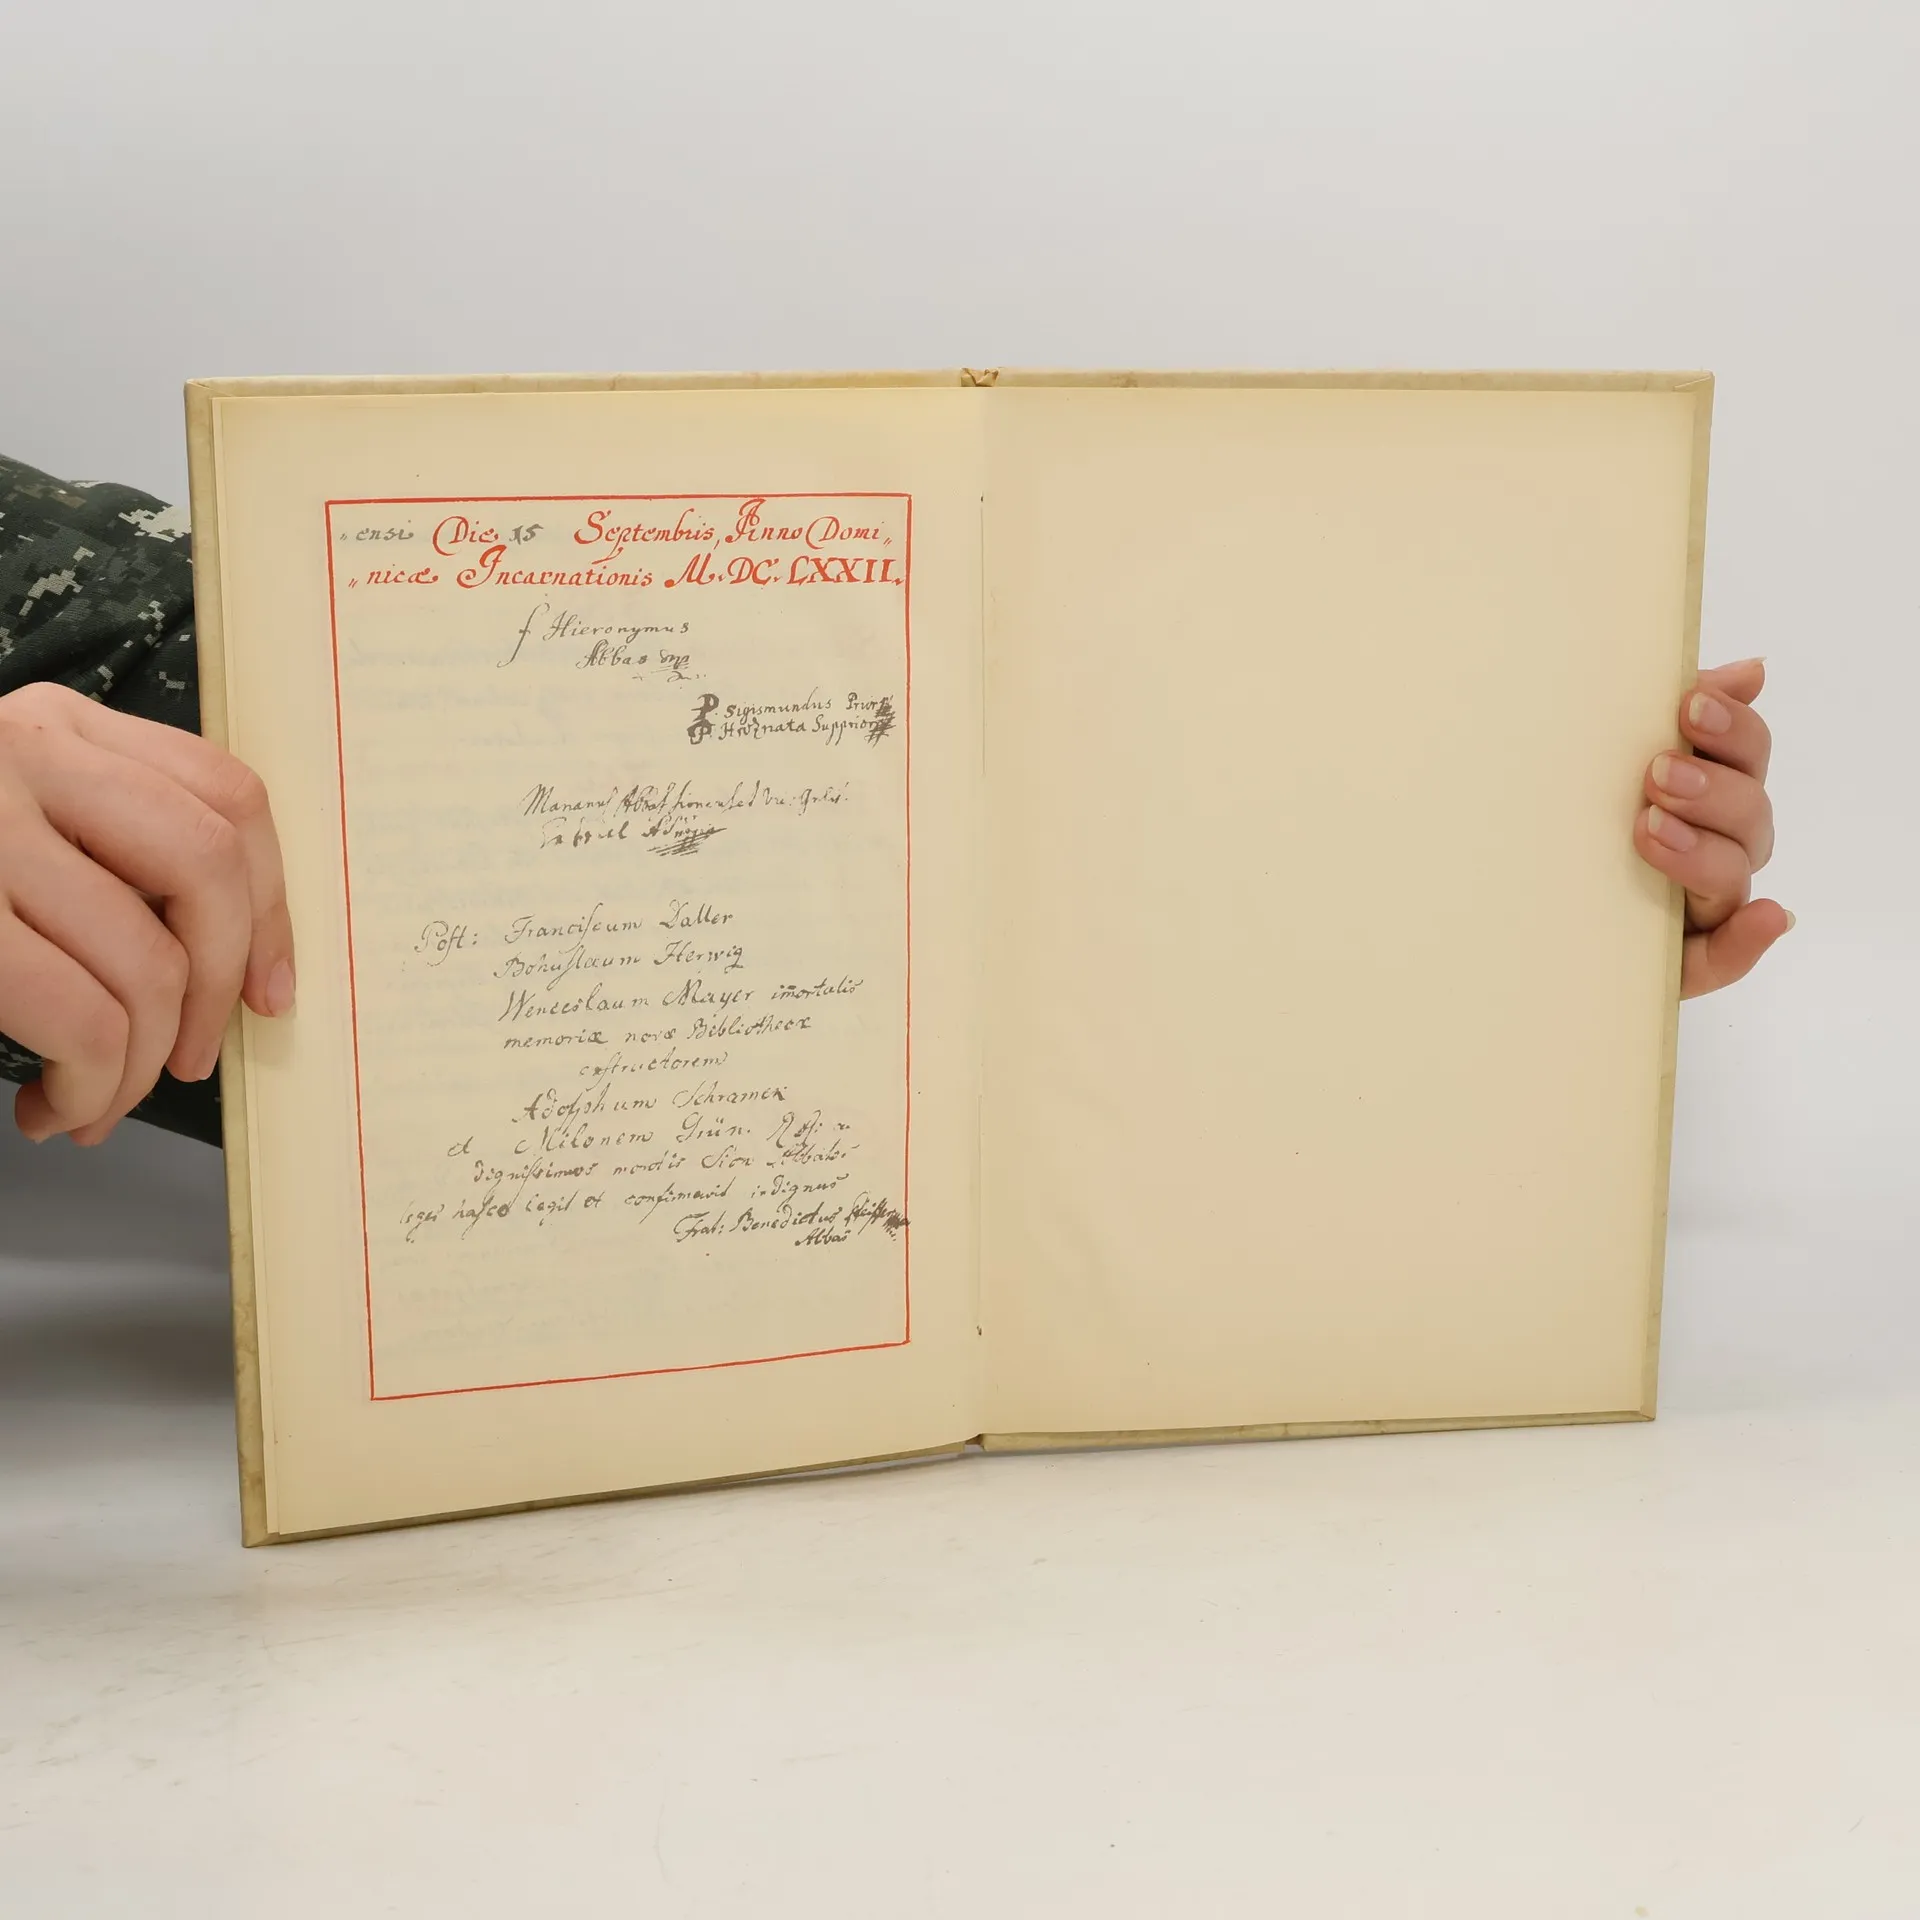 „ensi Die 15 Septembris, Anno Domi„
„nicæ Incarnationis M.DC.LXXII.
f Hieronymus
Abbas mp
P. Sigismundus Prior
P. Hroznata Supprior
Post: Franciscum Daller
Bohuslaum Herwig
Wenceslaum Mayer im̄ortalis
memoriæ novæ Bibliothecæ
exstructorem
Adolphum Schramek
et Milonem Grün.
dignissimos montis Sion Abbates
leges hasce legit et confirmavit indignus
Frat: Benedictus Pfeiffer
Abbas